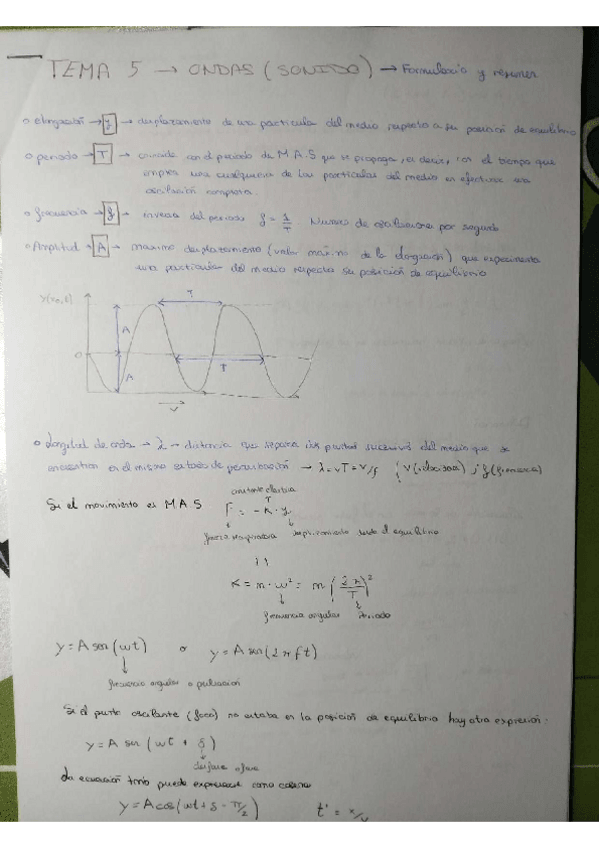 TEMA 5 → ONDAS (SONIDO) → Formulario y resumen
o elongación → y → desplazamiento de una partícula del medio respecto a su posición de equilibrio
o periodo → T → coincide con el periodo de M.A.S que se propaga, es decir, con el tiempo que
emplea una cualquiera de las partículas del medio en efectuar una
oscilación completa.
o frecuencia → f → inversa del periodo f = 1/T Número de oscilaciones por segundo
o Amplitud → A → máximo desplazamiento (valor máximo de la elongación) que experimenta
una partícula del medio respecto su posición de equilibrio
T
A
0
T
A
V
o longitud de onda → λ → distancia que separa dos puntos sucesivos del medio que se
encuentran en el mismo estado de perturbación → λ = vT = v/f { v (velocidad) ; f (frecuencia)
constante elástica
Si el movimiento es M.A.S F = -K · y
desplazamiento desde el equilibrio
K = m · ω² = m (2π/T)²
frecuencia angular periodo
y = A sen (ωt) o y = A sen (2πft)
frecuencia angular o pulsación
Si el punto oscilante (foco) no estaba en la posición de equilibrio hay otra expresión:
y = A sen (ωt + δ)
desfase
La ecuación tmb puede expresarse como coseno
y = A cos (ωt + δ - π/2) t' = x/v